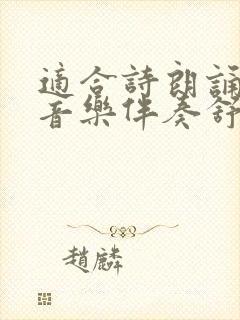 適合詩朗誦
音樂伴奏舒
趙麟